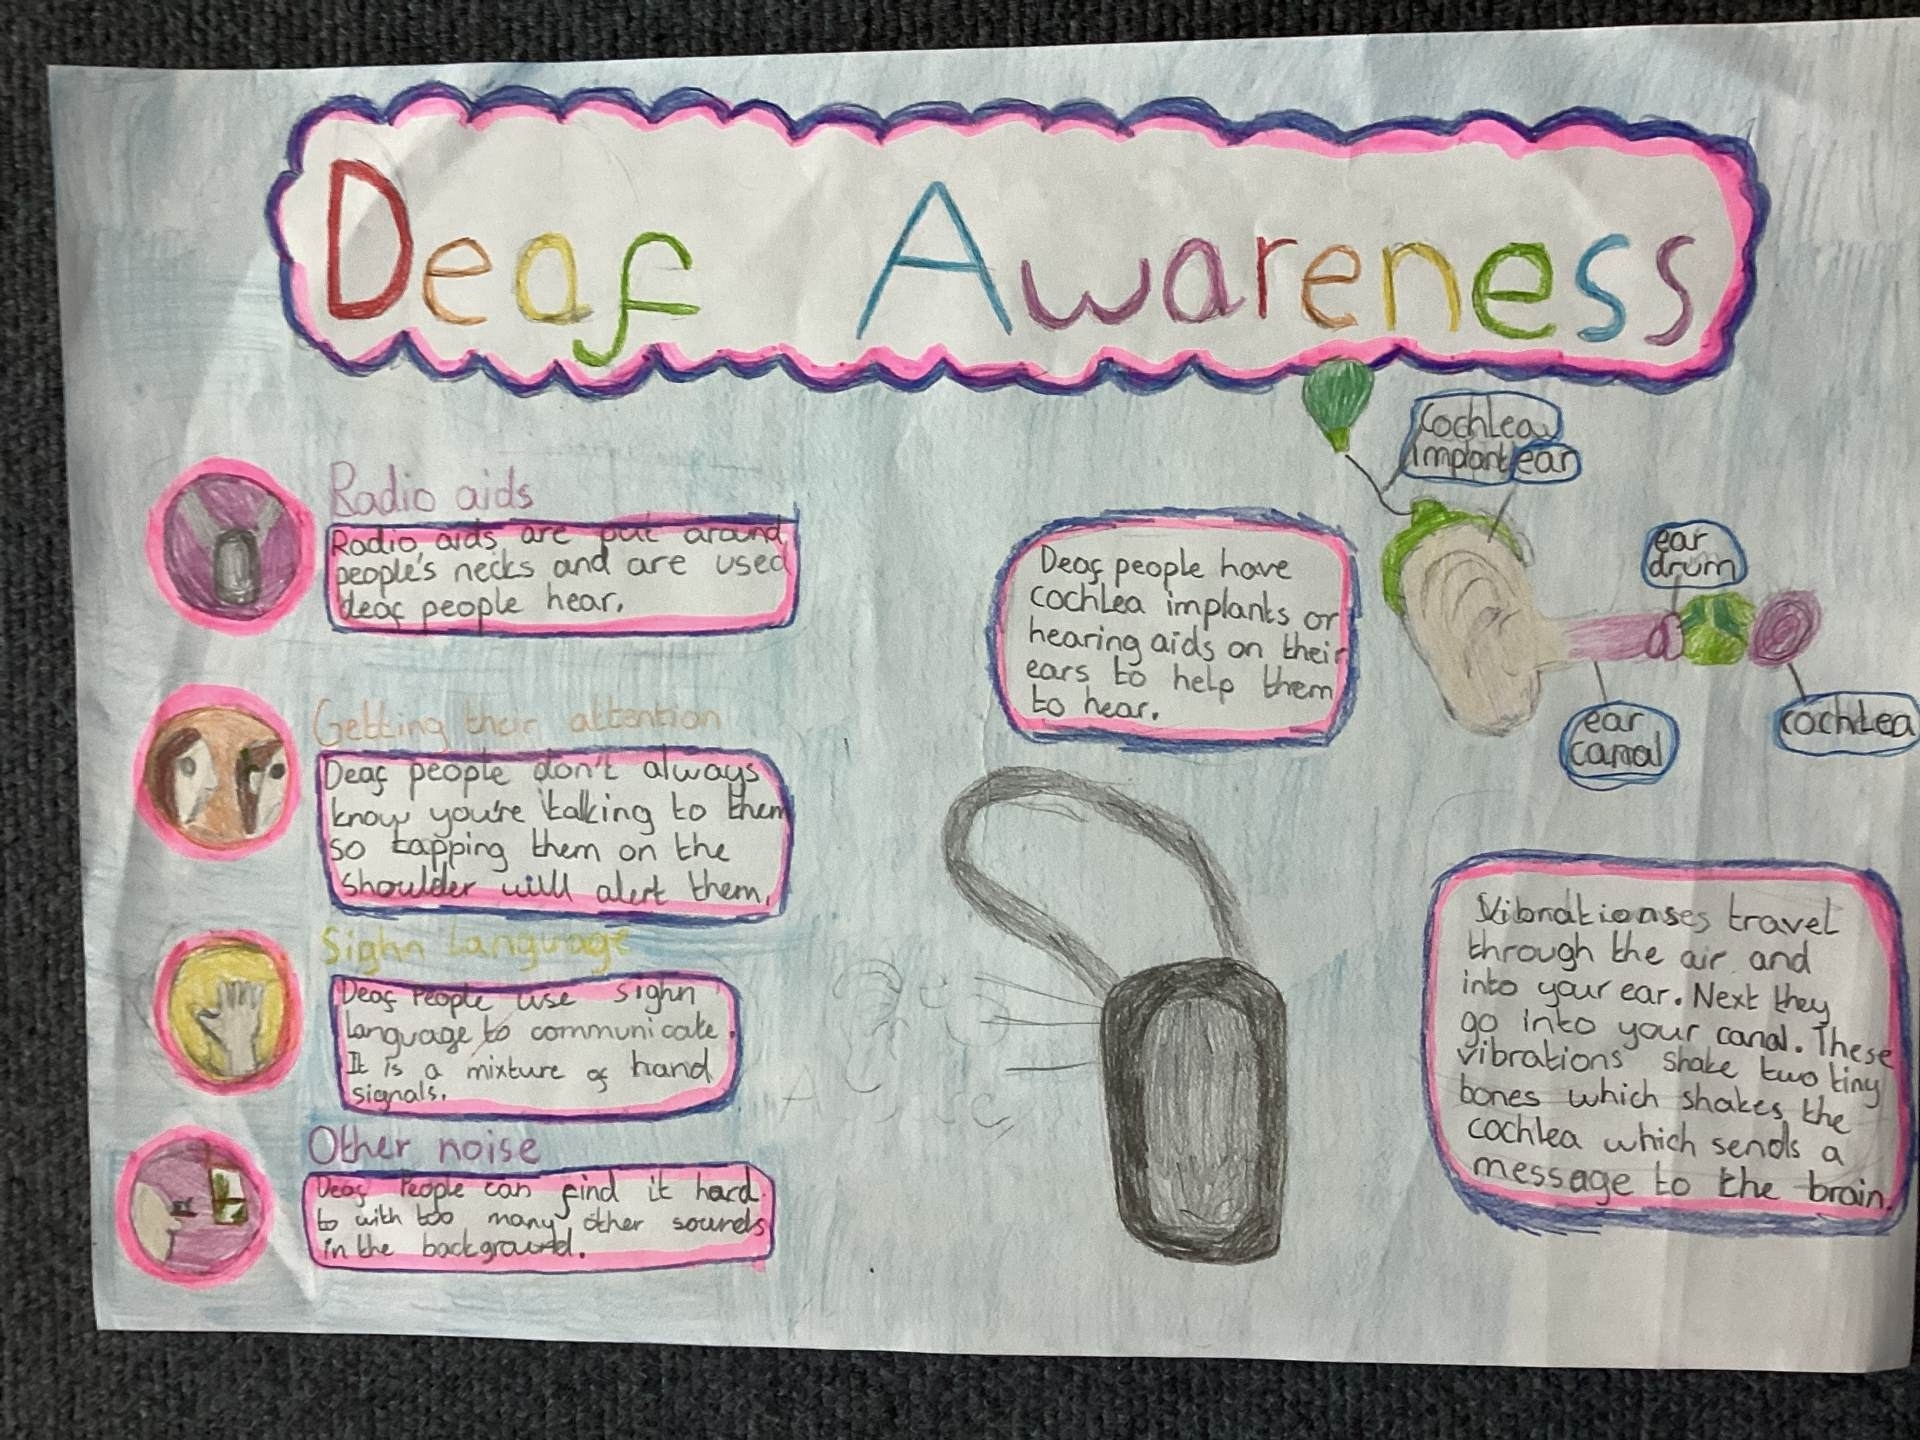 Deaf Awareness
Radio aids
Radio aids are put around
people's necks and are used
deaf people hear.
Getting their attention
Deaf people don't always
know you're talking to them
so tapping them on the
shoulder will alert them.
Sighn Language
Deaf People use sighn
language to communicate.
It is a mixture of hand
signals.
Other noise
Deaf People can find it hard
to with too many other sounds
in the background.
Deaf people have
cochlea implants or
hearing aids on their
ears to help them
to hear.
Cochlea
implant
ear
ear
drum
ear
canal
cochlea
Vibrationses travel
through the air and
into your ear. Next they
go into your canal. These
vibrations shake two tiny
bones which shakes the
cochlea which sends a
message to the brain.